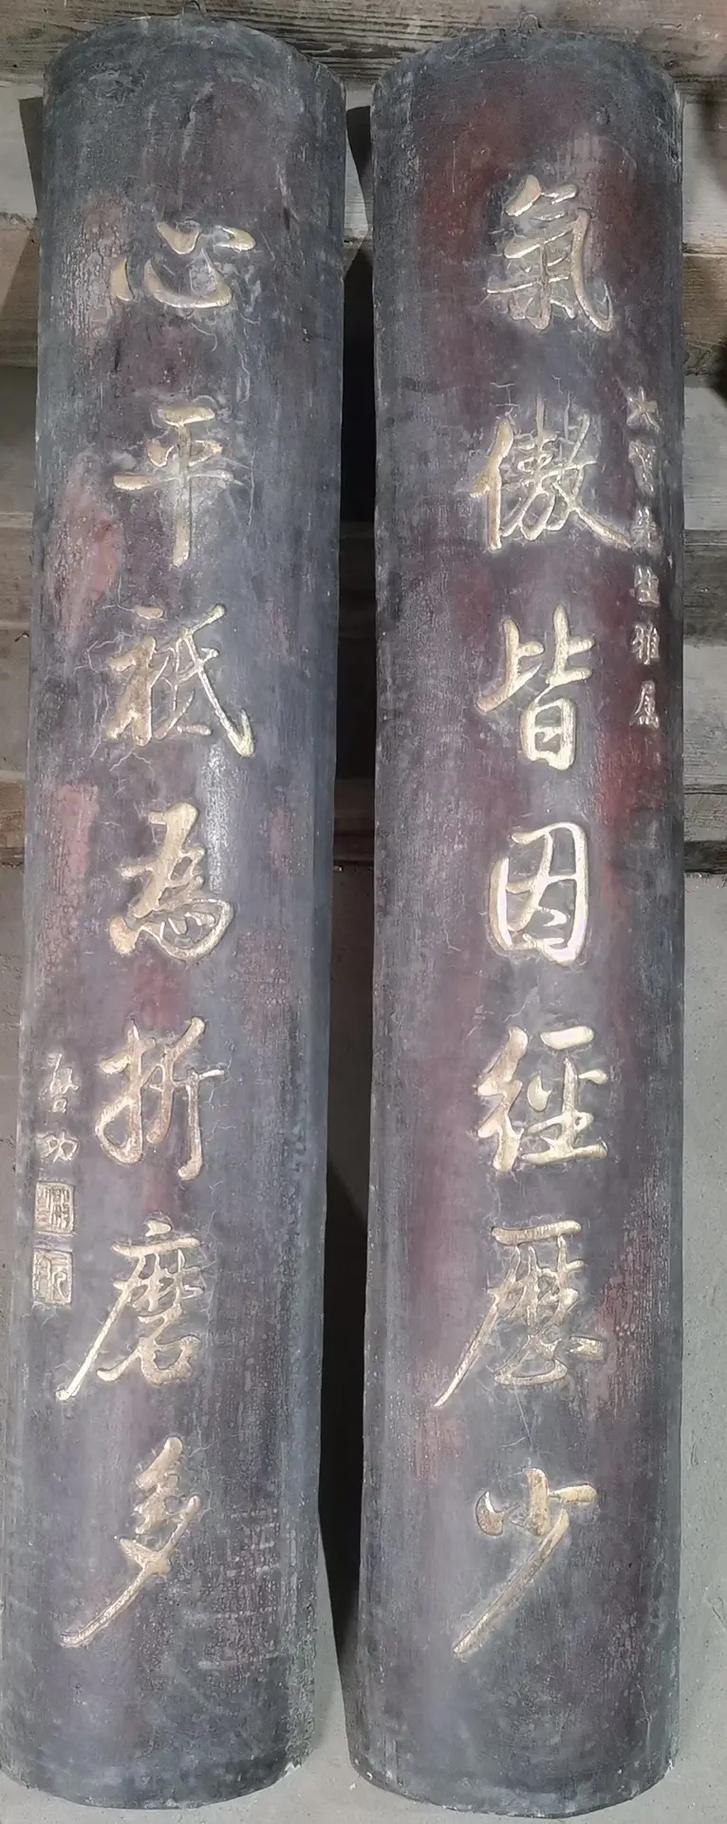 氣傲皆因經歷少
大賢先生雅屬
心平祇為折磨多
啟功